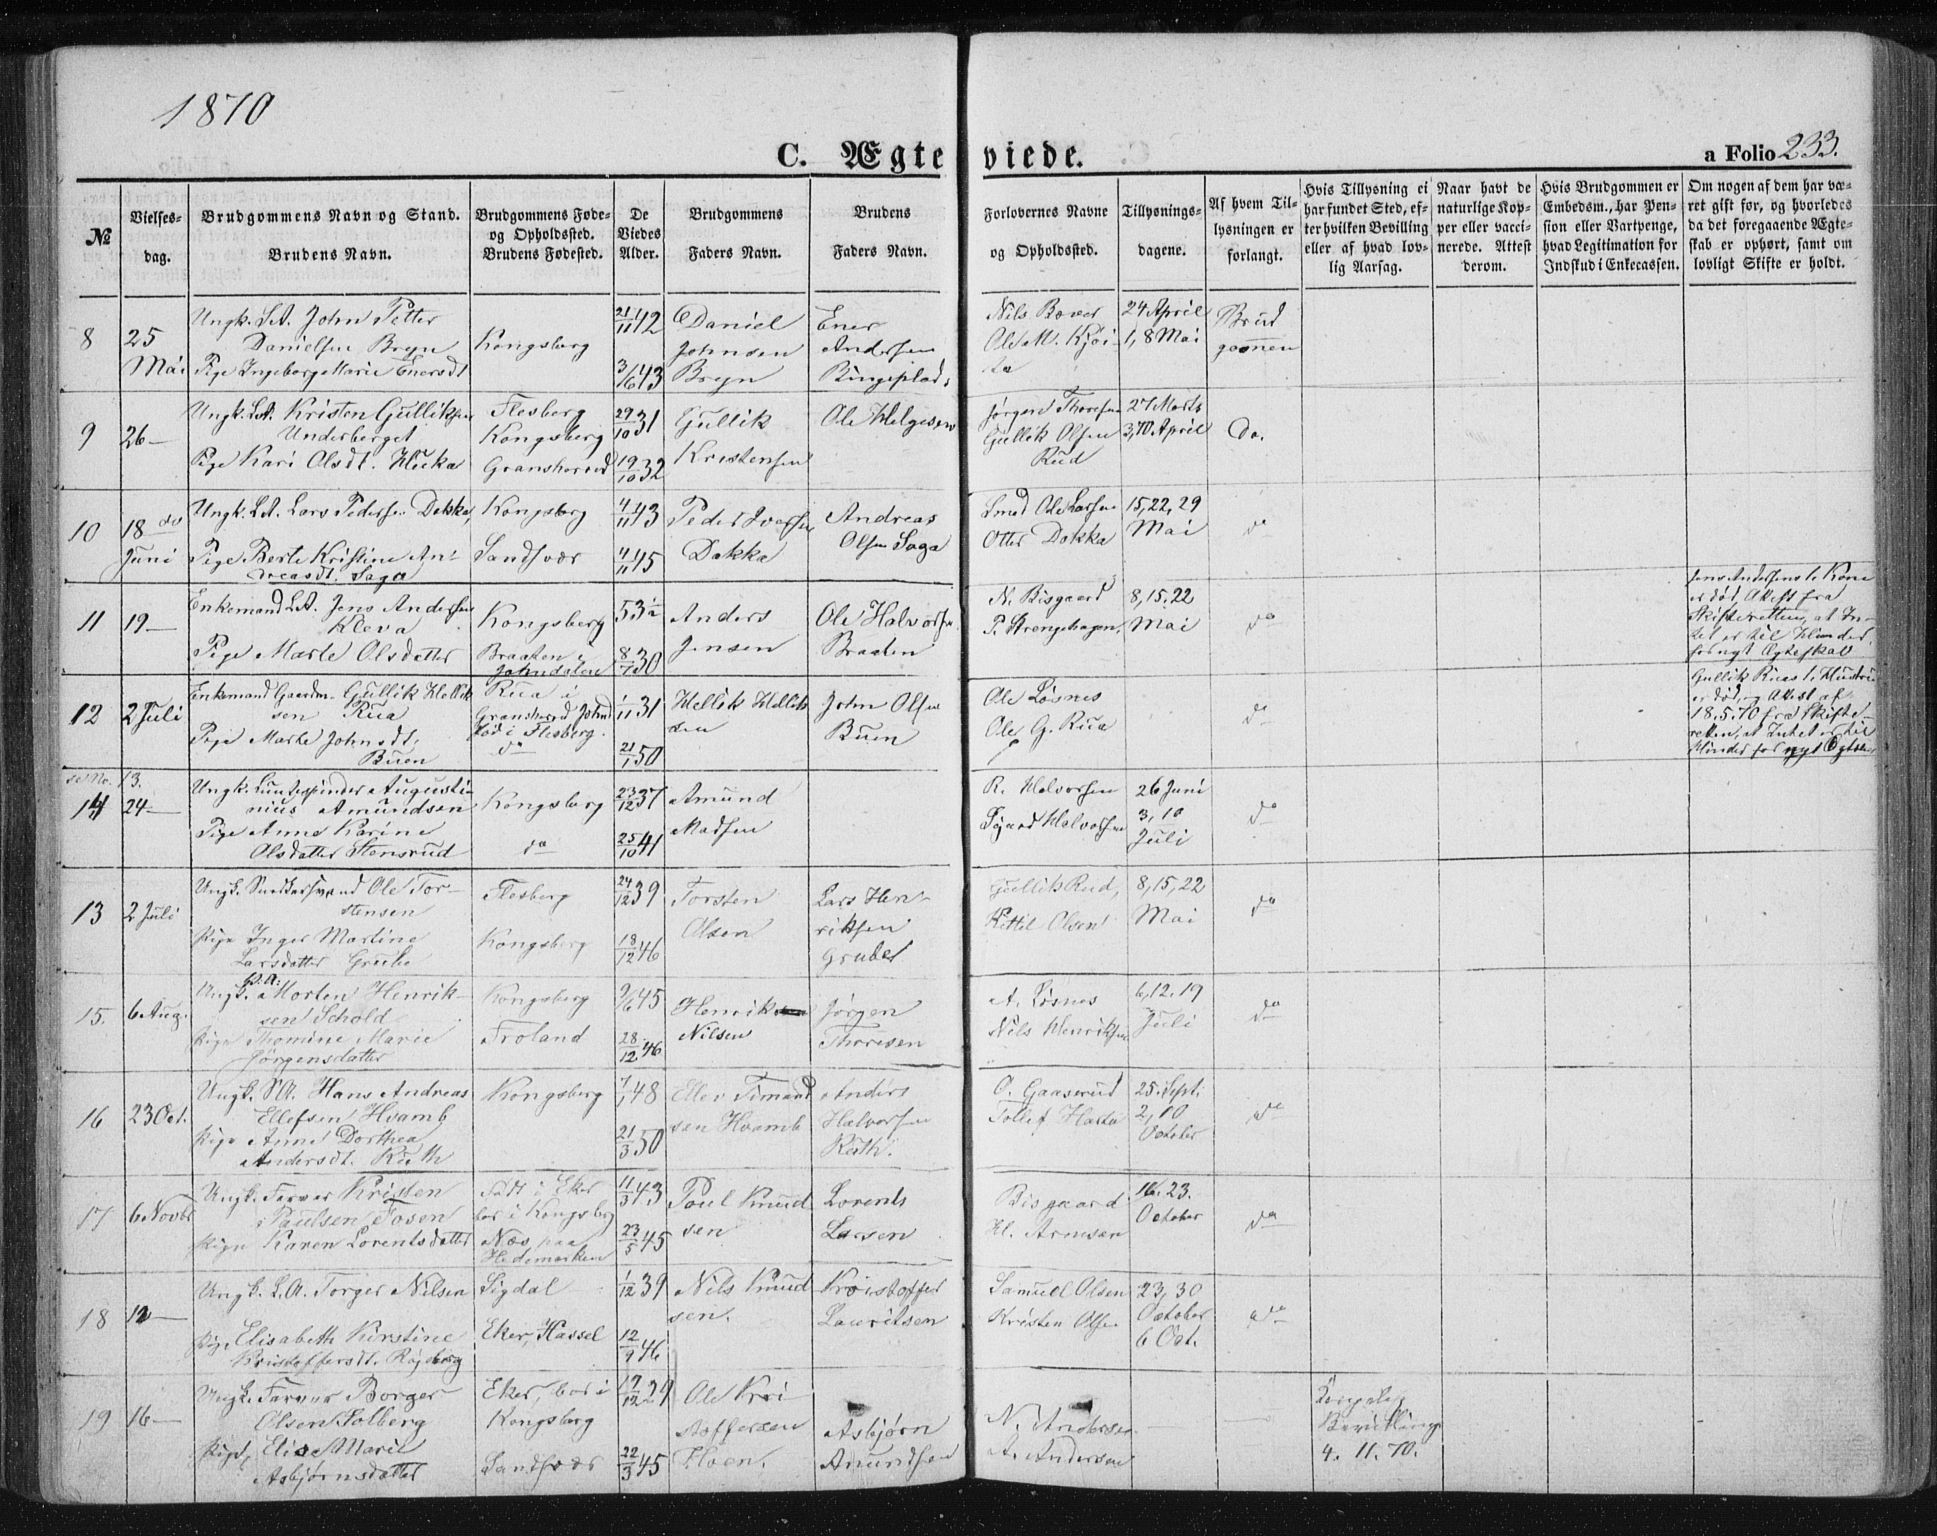 1870
C. Ægteviede.
a Folio 233.
№
Vielses-
dag.
Brudgommens Navn og Stand.
Brudens Navn.
Brudgommens Føde-
og Opholdssted.
Brudens Fødested.
De
Viedes
Alder.
Brudgommens
Faders Navn.
Brudens
Faders Navn.
Forlovernes Navne
og Opholdssted.
Tillysnings-
dagene.
Af hvem Til-
lysningen er
forlangt.
Hvis Tillysning ei
har fundet Sted, ef-
ter hvilken Bevilling
eller af hvad lov-
lig Aarsag.
Naar havt de
naturlige Kop-
per eller vacci-
nerede. Attest
derom.
Hvis Brudgommen er
Embedsm., har Pen-
sion eller Vartpenge,
hvad Legitimation for
Indskud i Enkecassen.
Om nogen af dem har væ-
ret gift før, og hvorledes
da det foregaaende Ægte-
skab er ophørt, samt om
lovligt Skifte er holdt.
8
25
Mai
Ungk. L.A. John Petter
Danielsen Bryn
Pige Ingeborg Marie Enersdt
Kongsberg
21/11 42
3/6 43
Daniel
Johnsen
Bryn
Ener
Andersen
Ringsplads
Nils Bæver
Ole M. Kjöi-
24 April
1, 8 Mai
Brud
gommen
9
26 —
Ungk. L.A. Kristen Gulliksen
Underberget
Pige Kari Olsdt.
Flesberg
Kongsberg
Gransherred
29/10 31
19/10 32
Gullik
Kristensen
Ole Helgesen
Jørgen Thoresen
Gullik Olsen
Rud
27 Marts
3, 10 April
Do.
10
18 do
Juni
Ungk. L.A. Lars Pedersen Dokka,
Pige Berte Kristine An-
dreasdt. Saga
Kongsberg
Sandsvær
4/11 43
4/11 45
Peder Iversen
Dokka
Andreas
Olsen Saga
Smed Ole Larsen
Otter Dokka
15, 22, 29
Mai
do
11
19 —
Enkemand L.A. Jens Andersen
Kleva
Pige Marte Olsdatter
Kongsberg
Braaten i
Johndalen
53 1/2
8/7 30
Anders
Jensen
Ole Halvorsen
Braaten
N. Bisgaard
P. Strengehagen,
8, 15, 22
Mai
do
Jens Andersens 1. Kone
er död, Attest fra
Skifteretten, at In-
tet er til Hinder
for nyt Ægteskab
12
2 Juli
Enkemand Gaardm. Gullik Hellik
sen Rua
Pige Marte Johnsdt.
Buen
Rua i
Gransherred
föd i Flesberg.
do
1/11 31
21/1 50
Hellik Hellik
sen
John Olsen
Buen
Ole Løsnes
Ole G. Rua
do
Gullik Ruas 1. Hustru
er död og Attest af
18.5.70 fra Skifte-
retten, at Intet er til
Hinder for nyt Ægtesk.
se No. 13.
14
24 —
Ungk. Augusti-
nius Amundsen
Pige Anne Karine
Olsdatter Stensrud
Kongsberg
do
23/12 37
25/10 41
Amund
Madsen
R. Halvorsen
Sjgurd Halvorsen
26 Juni
3, 10
Juli
do
13
2 Juli
Ungk. Ole Tor-
stensen
Pige Inger Martine
Larsdatter Grube
Flesberg
Kongsberg
24/12 39
18/12 46
Torsten
Olsen
Lars Hen-
riksen
Grube
Gullik Rud,
Kittil Olsen
8, 15, 22
Mai
do
15.
6 Aug.
Ungk. Morten Henrik-
sen Schold
Pige Thomine Marie
Jörgensdatter
Kongsberg
Froland
9/6 45
28/12 46
Henrik
Nilsen
Jörgen
Thoresen
A. Løsnes
Nils Henriksen
6, 12, 19
Juli
do
16
23 Oct.
Ungk. Hans Andreas
Ellefsen Hvamb
Pige Anne Dorthea
Andersdt. Ruth
Kongsberg
7/1 48
21/3 50
Ellev Simund
sen Hvamb
Anders
Halvorsen
Ruth.
O. Gaaserud
Tollef Hasta
25. Sept.
2, 10
October
do
17
6 Novbr
Ungk. Farver Kristen
Paulsen Fosen
Pige Karen Lorentsdatter
Født i Eker
bor i Kongsberg
Næs paa
Hedemarken
11/3 43
23/5 45
Poul Knud
sen
Lorents
Larsen
Bisgaard
H. Arnesen
16. 23.
October
do
18
12 —
Ungk. L.A. Torger Nilsen
Pige Elisabeth Kirstine
Kristoffersdt.
Sigdal
Eker, Hassel
1/12 39
12/9 46
Nils Knud
sen.
Kristoffer
Lauritsen
Samuel Olsen
Kristen Olsen
23, 30
October
6 Oct.
do
19
16 —
Ungk. Farver Borger
Olsen Solberg
Pige, Elise Marie
Asbjørnsdatter
Eker, bor i
Kongsberg
Sandsvær
17/12 29
22/3 45
Ole Kri
stoffersen
Hoen.
Asbjørn
Amundsen
N. Andersen
A. Andersen
Kongelig
Bevilling
4. 11. 70.